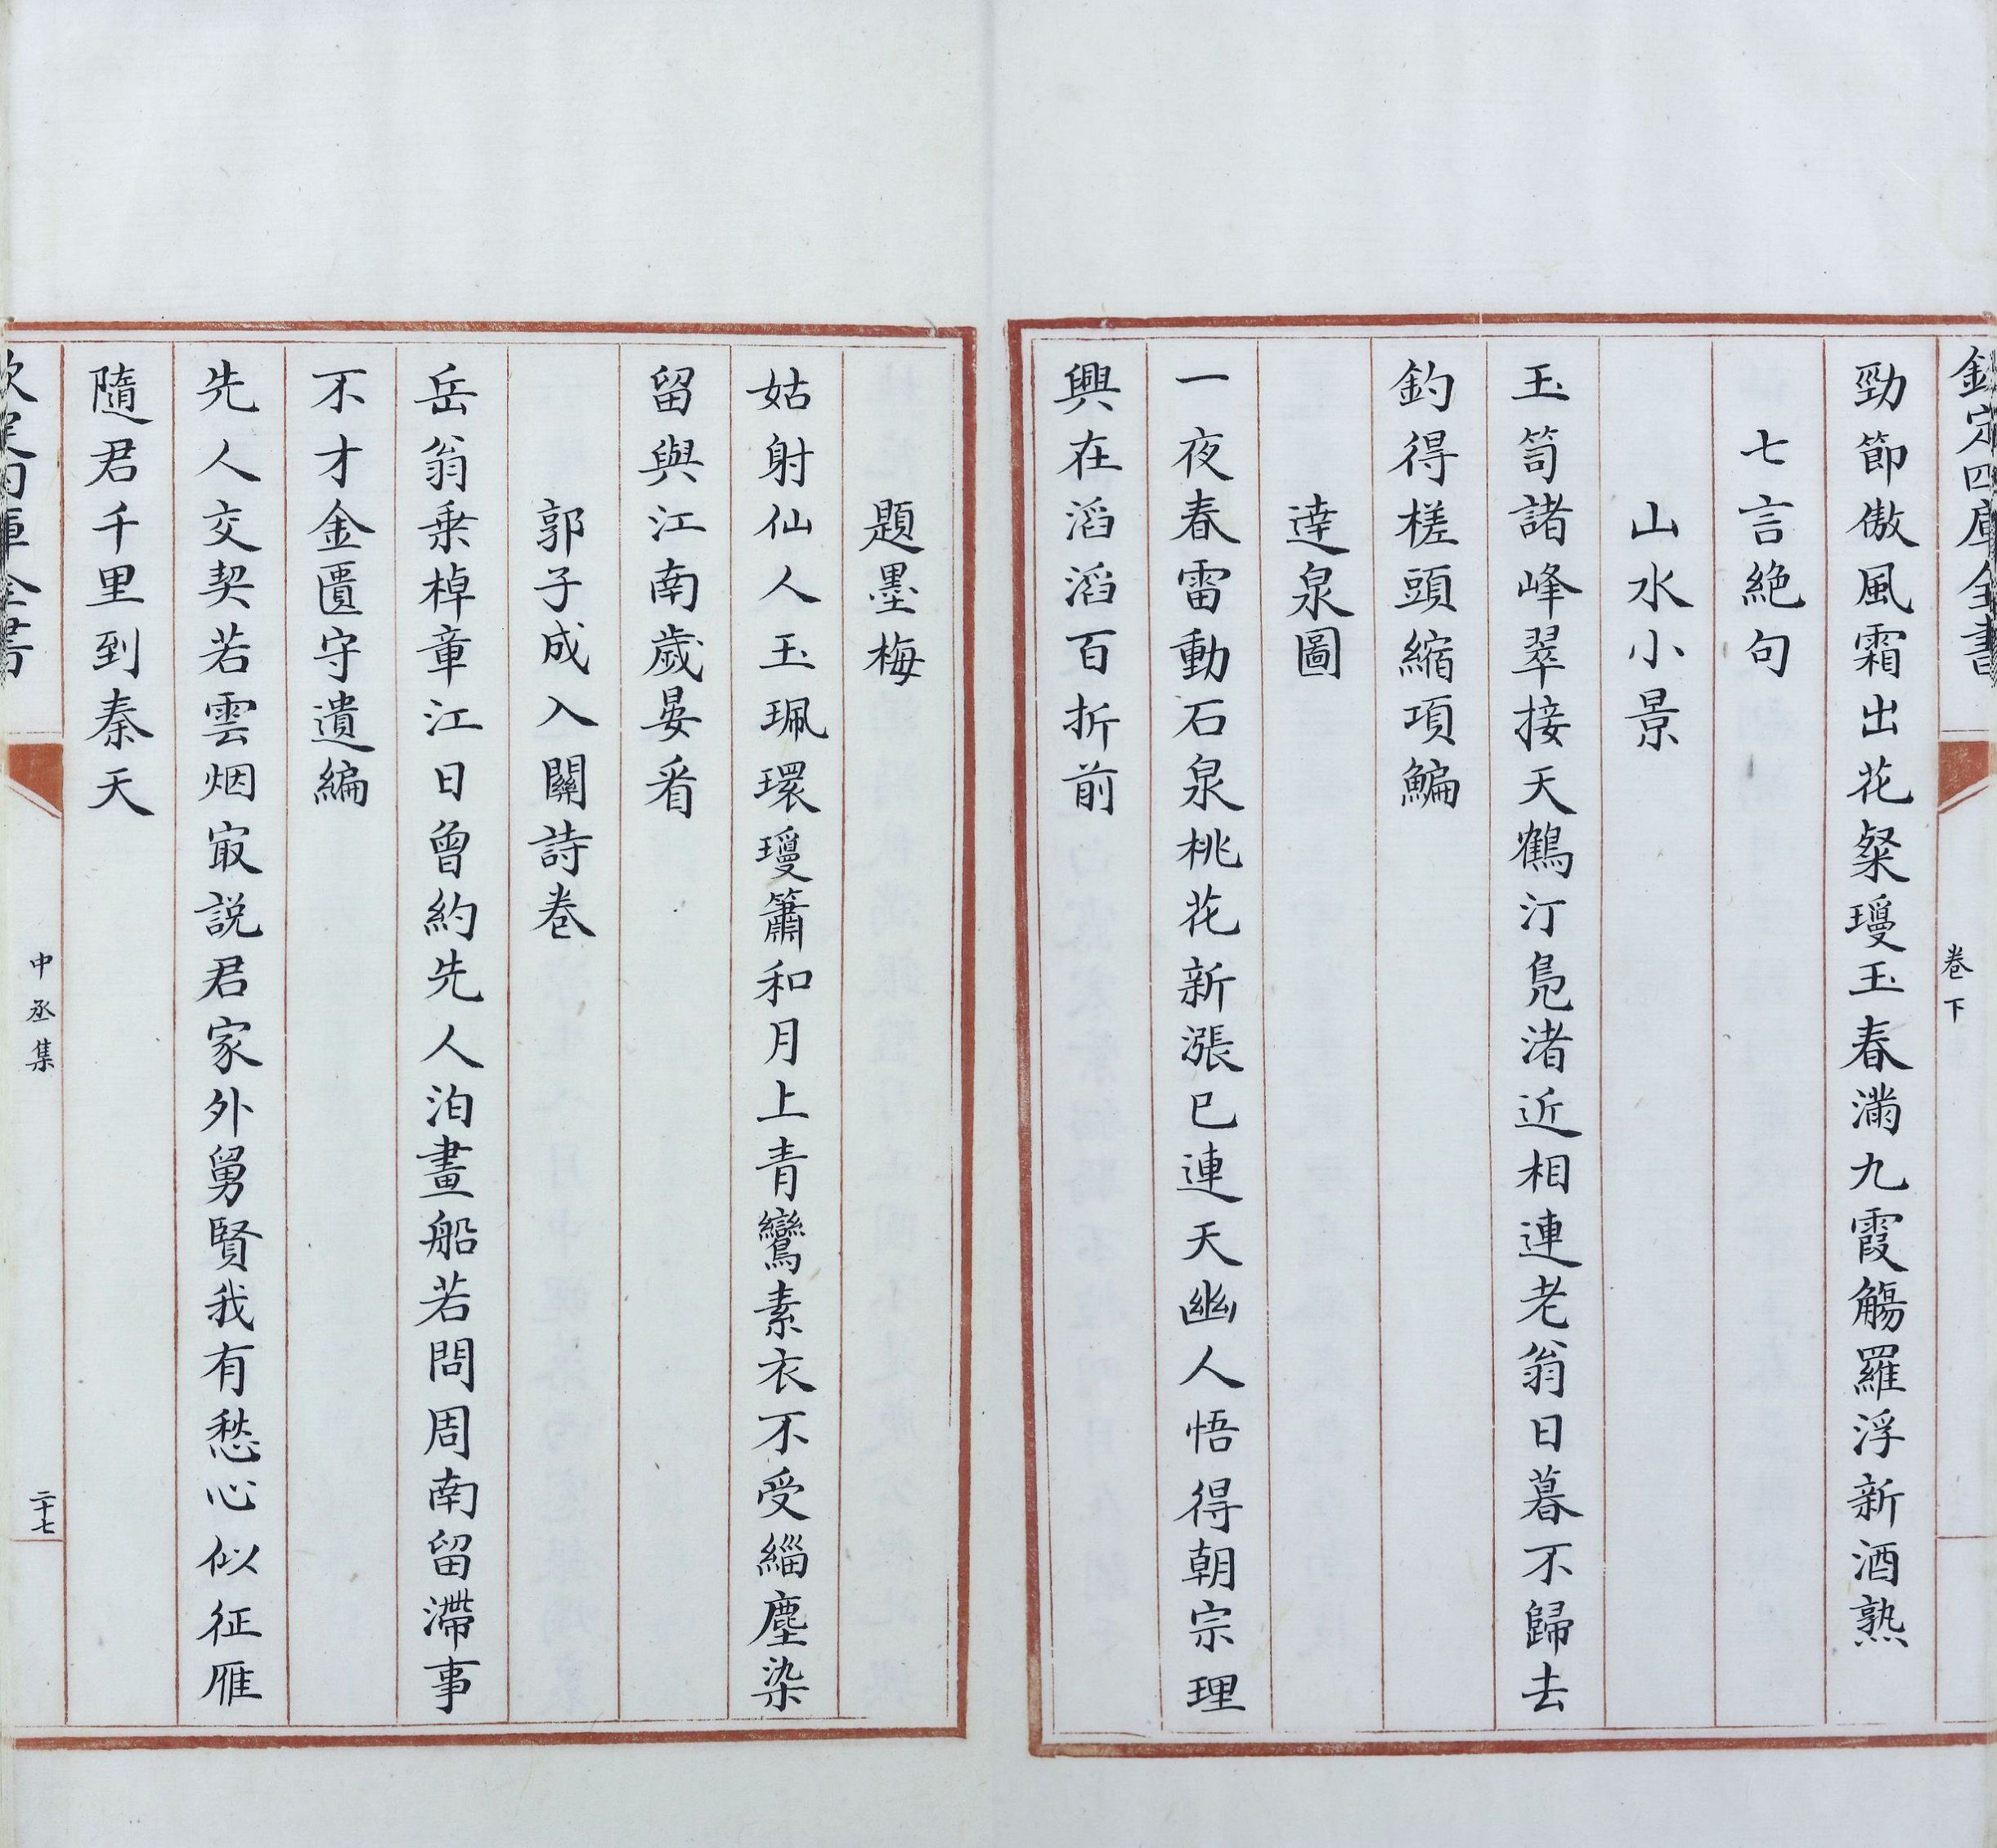 欽定四庫全書
卷下
勁節傲風霜出花粲瓊玉春滿九霞觴羅浮新酒熟
七言絶句
山水小景
玉笥諸峰翠接天鶴汀鳬渚近相連老翁日暮不歸去
釣得槎頭縮項鯿
逹泉圖
一夜春雷動石泉桃花新漲已連天幽人悟得朝宗理
興在滔滔百折前
題墨梅
姑射仙人玉珮環瓊簫和月上青鸞素衣不受緇塵染
留與江南歲晏看
郭子成入關詩卷
岳翁乗棹章江日曾約先人泊畫船若問周南留滯事
不才金匱守遺編
先人交契若雲烟㝡説君家外舅賢我有愁心似征雁
隨君千里到秦天
欽定四庫全書
中丞集
二十七